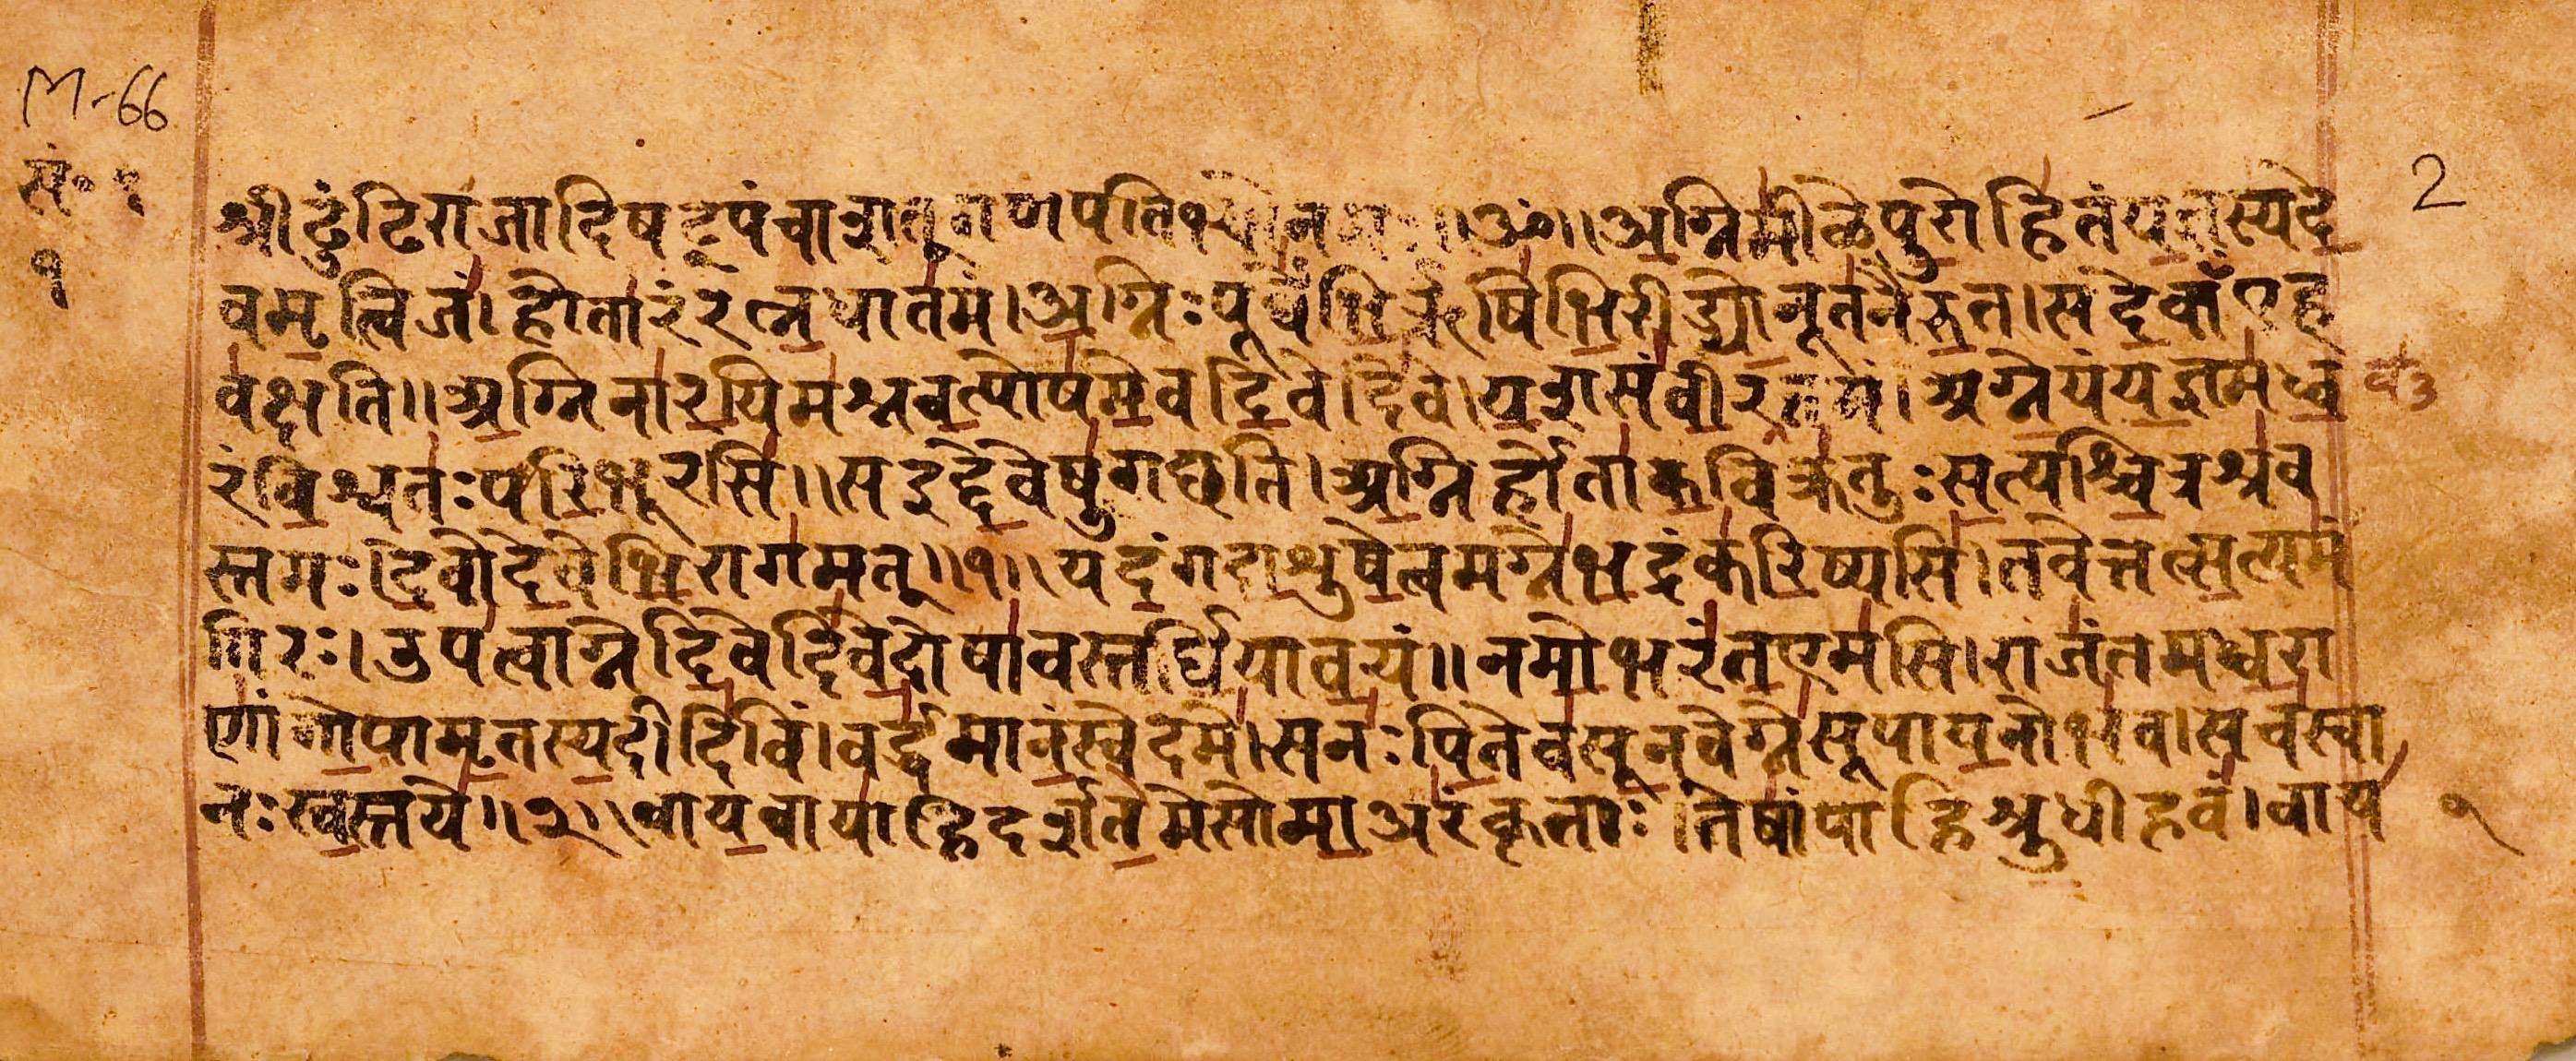 M-66
सं॰ १
2
१
श्रीढुंढिराजादिषट्पंचाशत्गणपतिभ्योनमः॥ॐ॥अग्निमीळेपुरोहितंयज्ञस्यदे
वमृत्विजं।होतारंरत्नधातमं।अग्निःपूर्वेभिर्ऋषिभिरीड्योनूतनैरुत।सदेवाँएह
वक्षति॥अग्निनारयिमश्नवत्पोषमेवदिवेदिवे।यशसंवीरवत्तमं।अग्नेयंयज्ञमध्व
रंविश्वतःपरिभूरसि॥सइद्देवेषुगछति।अग्निर्होताकविक्रतुःसत्यश्चित्रश्रव
स्तमः।देवोदेवेभिरागमत्॥१॥यदंगदाशुषेत्वमग्नेभद्रंकरिष्यसि।तवेत्तत्सत्यमं
गिरः।उपत्वाग्नेदिवेदिवेदोषावस्तर्धियावयं॥नमोभरंतएमसि।राजंतमध्वरा
णांगोपामृतस्यदीदिविं।वर्द्धमानंस्वेदमे।सनःपितेवसूनवेग्नेसूपायनोभव।सचस्वा
नःस्वस्तये॥२॥वायवायाहिदर्शतेमेसोमाअरंकृताः।तेषांपाहिश्रुधीहवं।वाय
१